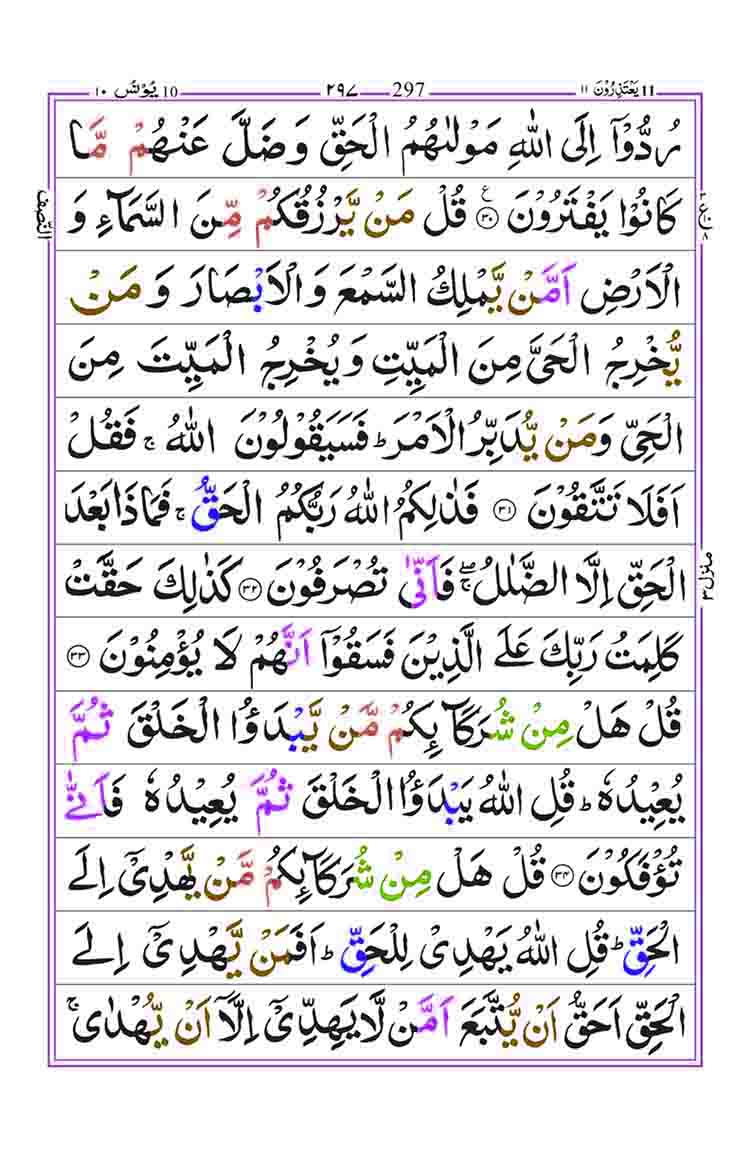 ١٠ يُوْنُس 10 ٢٩٧ 297 ١١ يَعْتَذِرُوْنَ 11
رُدُّوْٓا اِلَى اللّٰهِ مَوْلٰىهُمُ الْحَقِّ وَضَلَّ عَنْهُمْ مَّا
كَانُوْا يَفْتَرُوْنَ ۝٣٠ ع قُلْ مَنْ يَّرْزُقُكُمْ مِّنَ السَّمَآءِ وَ
النّصف
الْاَرْضِ اَمَّنْ يَّمْلِكُ السَّمْعَ وَالْاَبْصَارَ وَ مَنْ
يُّخْرِجُ الْحَىَّ مِنَ الْمَيِّتِ وَيُخْرِجُ الْمَيِّتَ مِنَ
الْحَىِّ وَمَنْ يُّدَبِّرُ الْاَمْرَ ؕ فَسَيَقُوْلُوْنَ اللّٰهُ ۚ فَقُلْ
اَفَلَا تَتَّقُوْنَ ۝٣١ فَذٰلِكُمُ اللّٰهُ رَبُّكُمُ الْحَقُّ ۚ فَمَاذَا بَعْدَ
الْحَقِّ اِلَّا الضَّلٰلُ ۖۚ فَاَنّٰى تُصْرَفُوْنَ ۝٣٢ كَذٰلِكَ حَقَّتْ
منزل ٣
كَلِمَتُ رَبِّكَ عَلَى الَّذِيْنَ فَسَقُوْٓا اَنَّهُمْ لَا يُؤْمِنُوْنَ ۝٣٣
قُلْ هَلْ مِنْ شُرَكَآئِكُمْ مَّنْ يَّبْدَؤُا الْخَلْقَ ثُمَّ
يُعِيْدُهٗ ؕ قُلِ اللّٰهُ يَبْدَؤُا الْخَلْقَ ثُمَّ يُعِيْدُهٗ فَاَنّٰى
تُؤْفَكُوْنَ ۝٣٤ قُلْ هَلْ مِنْ شُرَكَآئِكُمْ مَّنْ يَّهْدِىْٓ اِلَى
الْحَقِّ ؕ قُلِ اللّٰهُ يَهْدِىْ لِلْحَقِّ ؕ اَفَمَنْ يَّهْدِىْٓ اِلَى
الْحَقِّ اَحَقُّ اَنْ يُّتَّبَعَ اَمَّنْ لَّا يَهِدِّىْٓ اِلَّآ اَنْ يُّهْدٰى ۚ